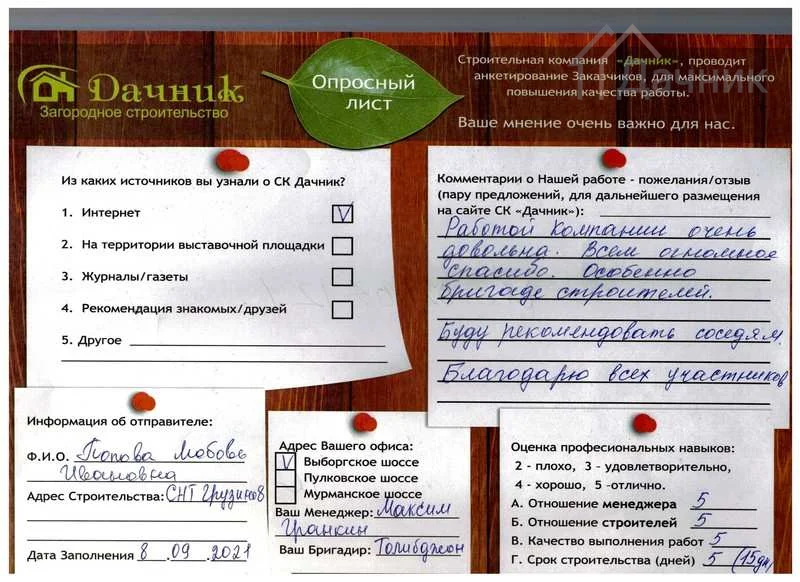 Дачник
Загородное строительство
Опросный
лист
Строительная компания «Дачник», проводит
анкетирование Заказчиков, для максимального
повышения качества работы.
Ваше мнение очень важно для нас.
Дачник
Из каких источников вы узнали о СК Дачник?
1. Интернет V
2. На территории выставочной площадки
3. Журналы/газеты
4. Рекомендация знакомых/друзей
5. Другое
Комментарии о Нашей работе - пожелания/отзыв
(пару предложений, для дальнейшего размещения
на сайте СК «Дачник»):
Работой компании очень
довольна. Всем огномное
спасибо. Особенно
бригаде строителей.
Буду рекомендовать соседям.
Благодарю всех участников
Информация об отправителе:
Ф.И.О. Попова Любовь
Ивановна
Адрес Строительства: СНТ Грузинов
Дата Заполнения 8 .09 .2021
Адрес Вашего офиса:
V Выборгское шоссе
Пулковское шоссе
Мурманское шоссе
Ваш Менеджер: Максим
Гранкин
Ваш Бригадир: Толибджон
Оценка профессиональных навыков:
2 - плохо, 3 - удовлетворительно,
4 - хорошо, 5 -отлично.
А. Отношение менеджера 5
Б. Отношение строителей 5
В. Качество выполнения работ 5
Г. Срок строительства (дней) 5 (15дн)